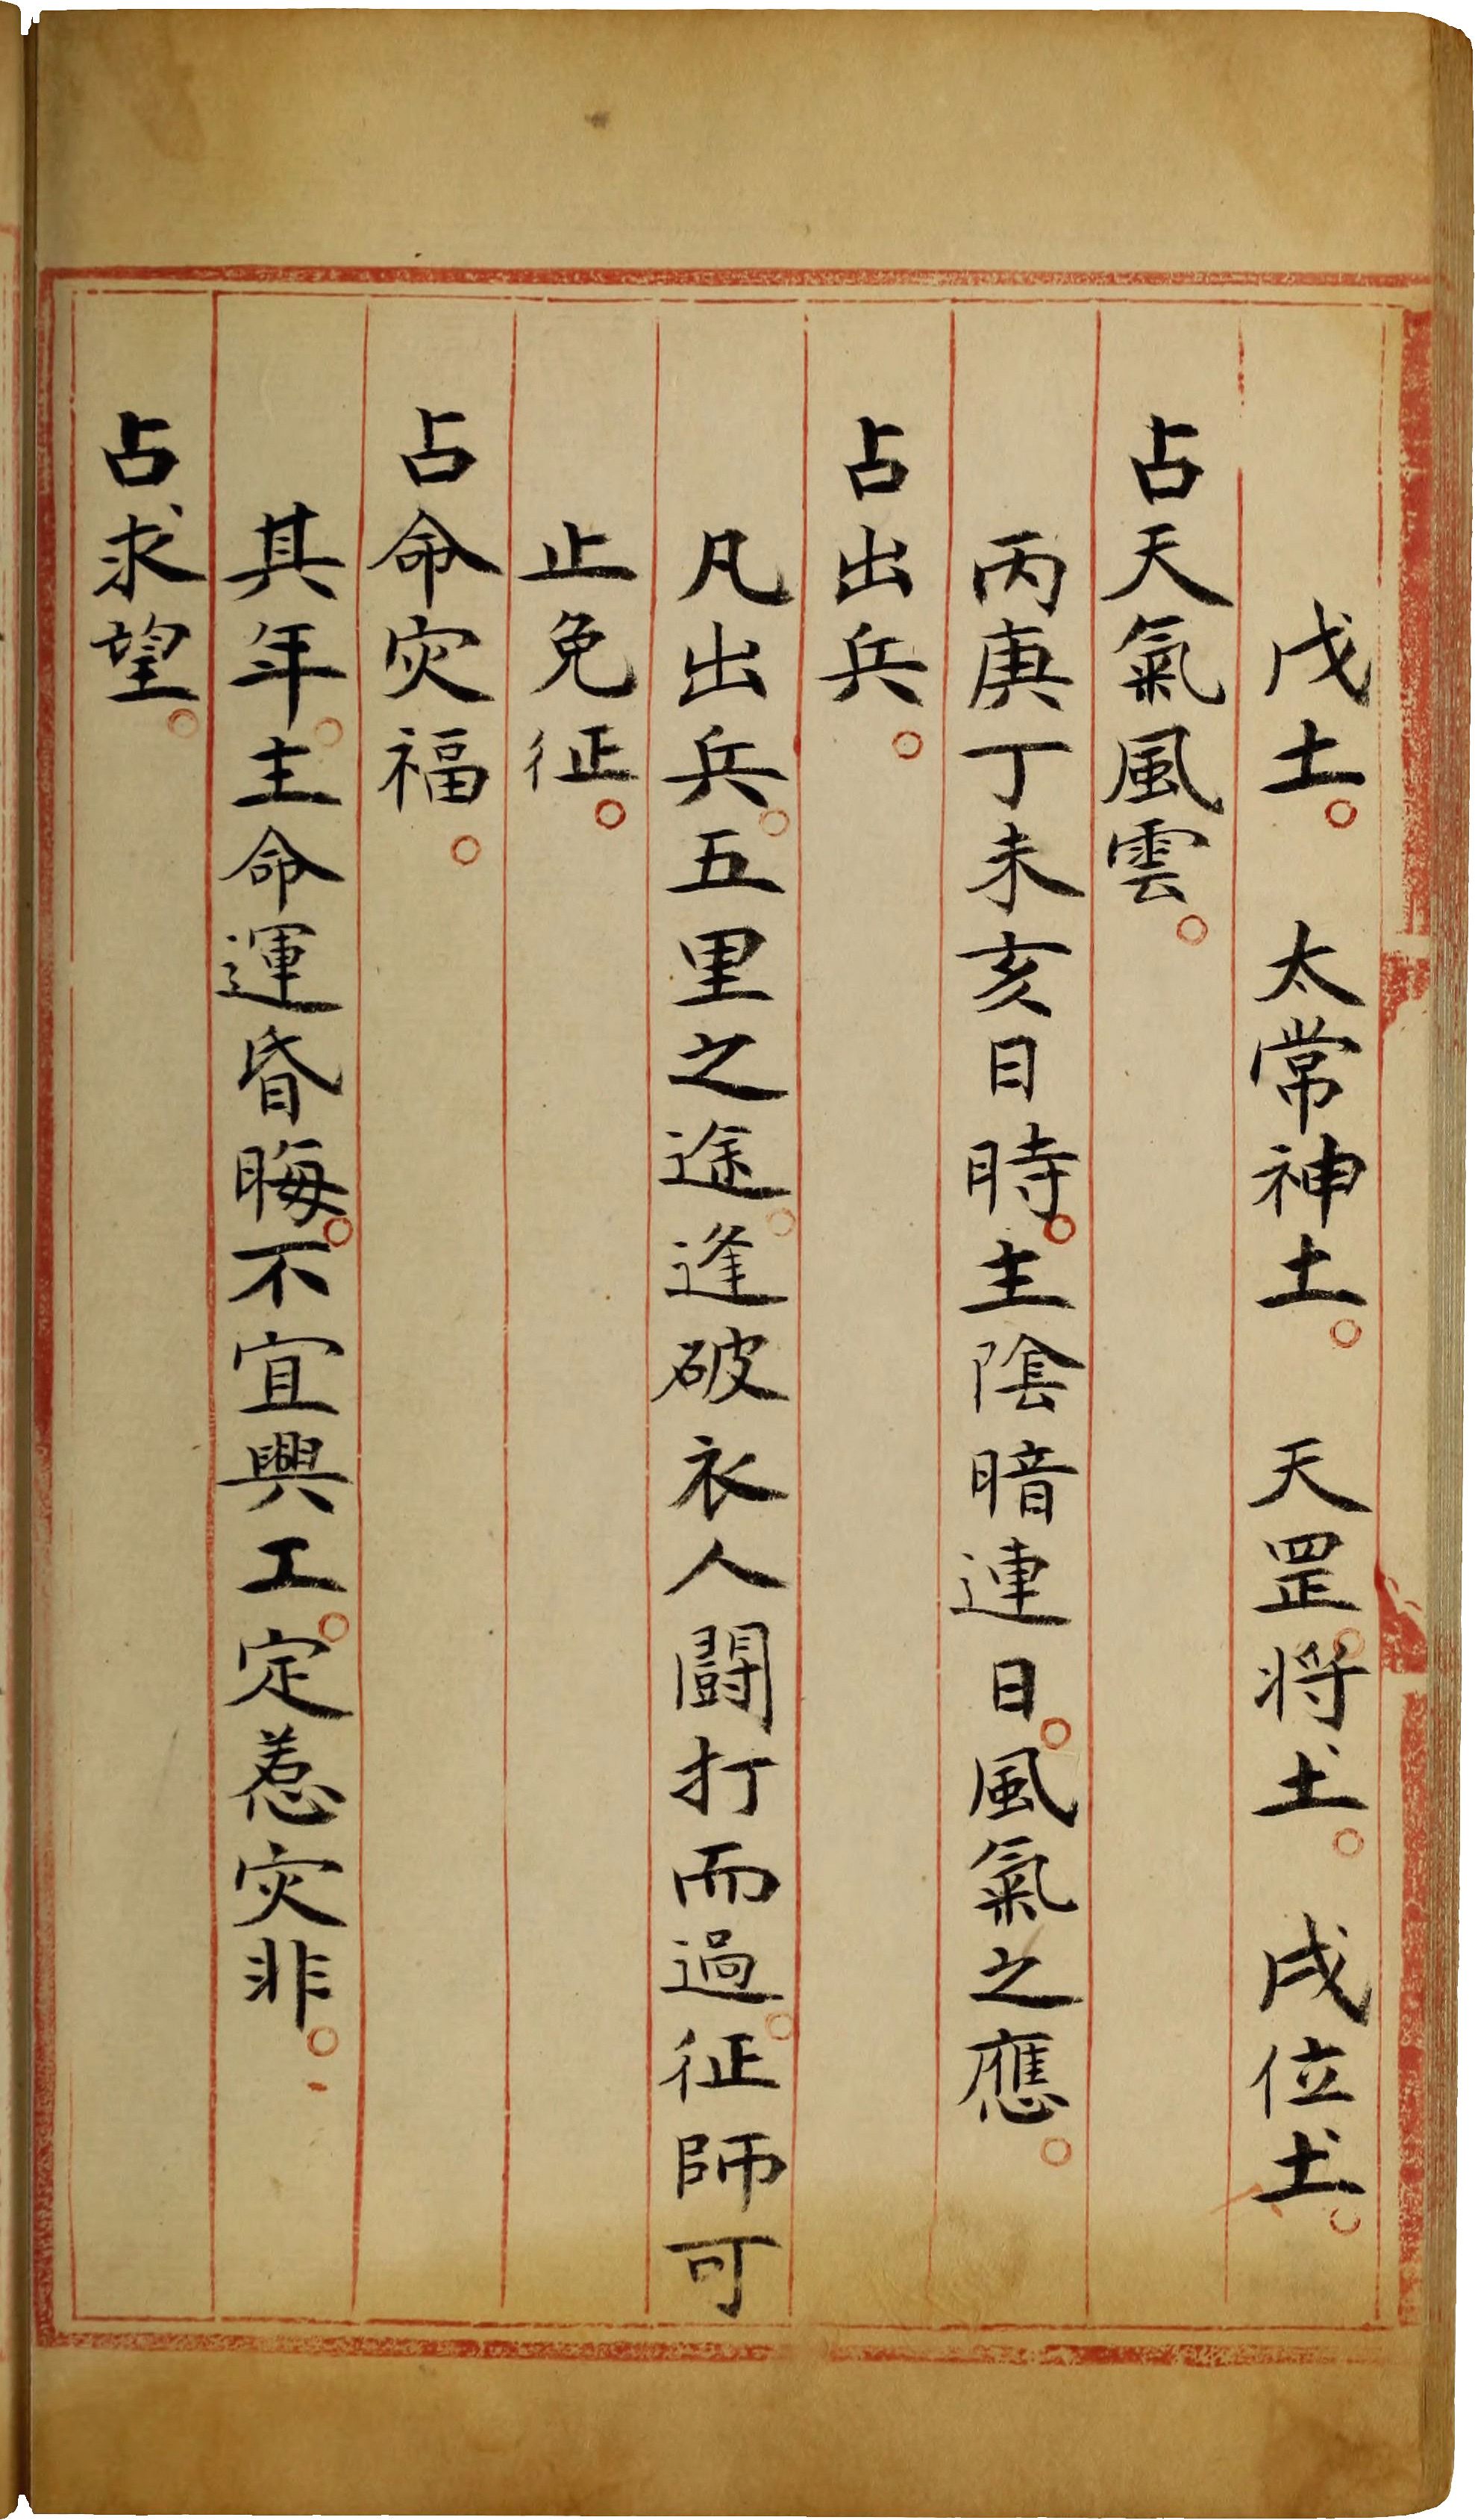 戊土。　太常神土。　天罡。将土。　戌位土。
占天氣風雲。
丙庚丁未亥日時。主陰暗連日。風氣之應。
占出兵。
凡出兵。五里之途。逢破衣人鬪打而過。征師可
止免征。
占命灾福。
其年。主命運昏晦。不宜興工。定惹灾非。
占求望。